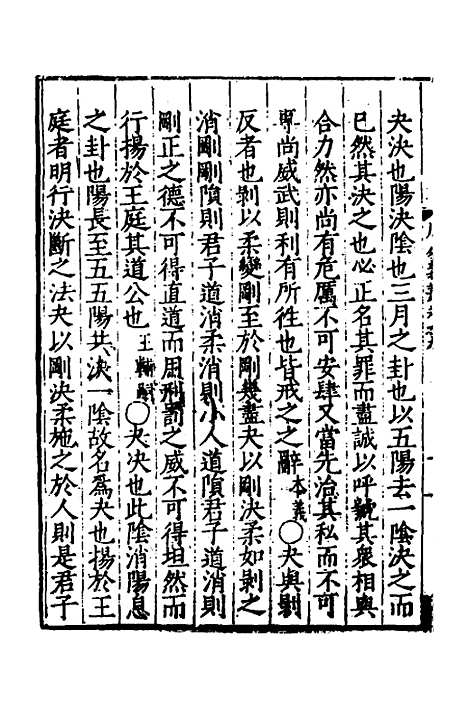 夬決也陽決陰也三月之卦也以五陽去一陰決之而
已然其決之也必正名其罪而盡誠以呼號其眾相與
合力然亦尚有危厲不可安肆又當先治其私而不可
專尚威武則利有所往也皆戒之之辭本義〇夬與剝
反者也剝以柔變剛至於剛幾盡夬以剛決柔如剝之
消剛剛隕則君子道消柔消則小人道隕君子道消則
剛正之德不可得直道而用刑罰之威不可得坦然而
行揚於王庭其道公也王輔嗣〇夬決也此陰消陽息
之卦也陽長至五五陽共決一陰故名爲夬也揚於王
庭者明行決斷之法夬以剛決柔施之於人則是君子